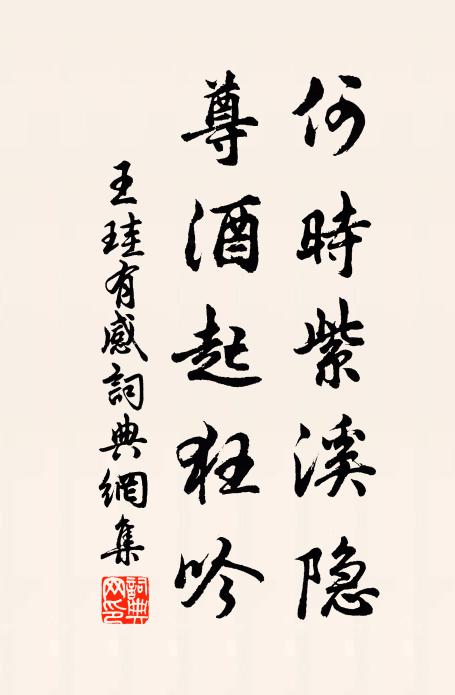 何時紫溪隐
尊酒起狂吟
王珪有感詞典網集
詞典网印